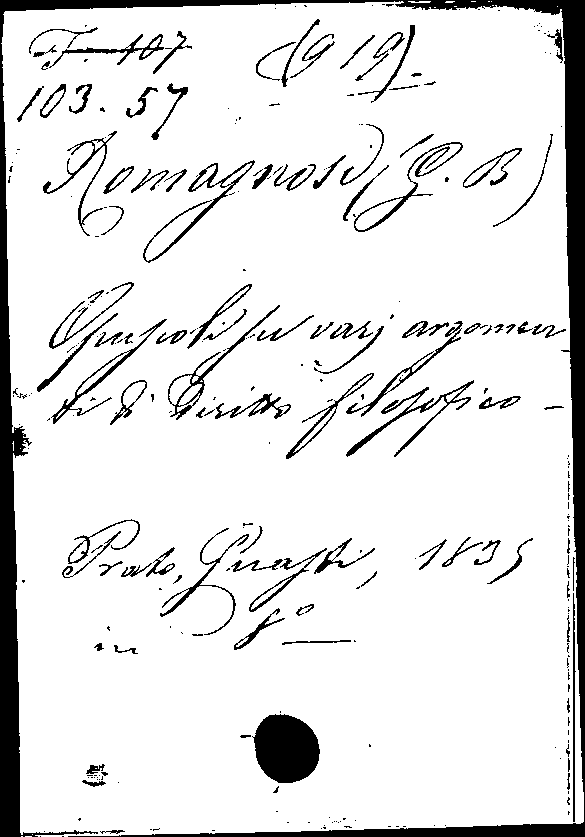 F. 107 (919).
103.57
Romagnosi (G. B)
Opuscoli su varj argomen-
ti di Diritto filosofico -
Prato, Guasti, 1835
in 8º